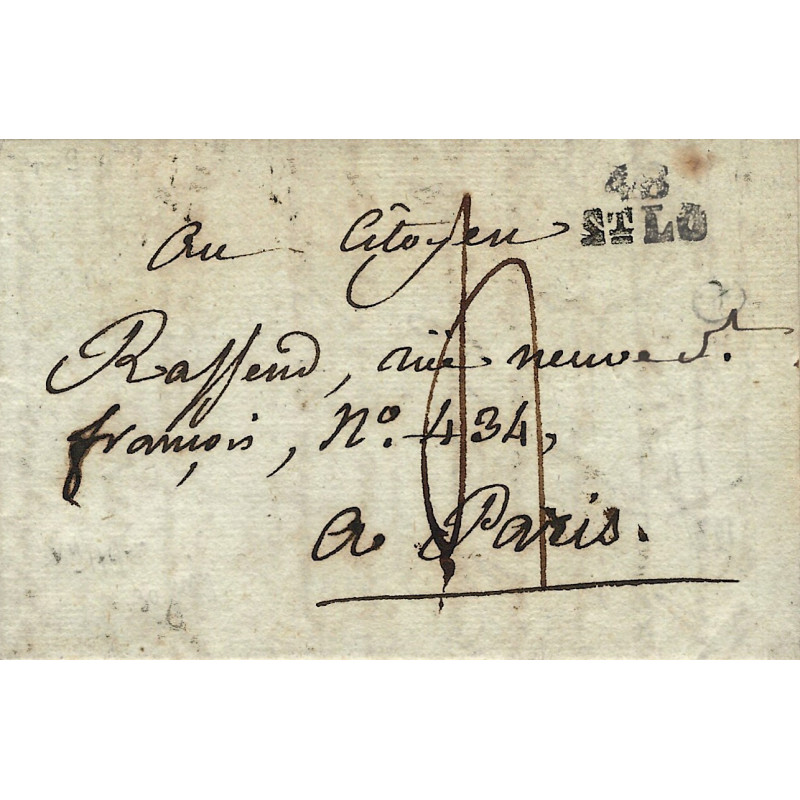 48
STLO
Au Citoyen
Raffend, rüe neuve St.
françois, No. 434,
a Paris.